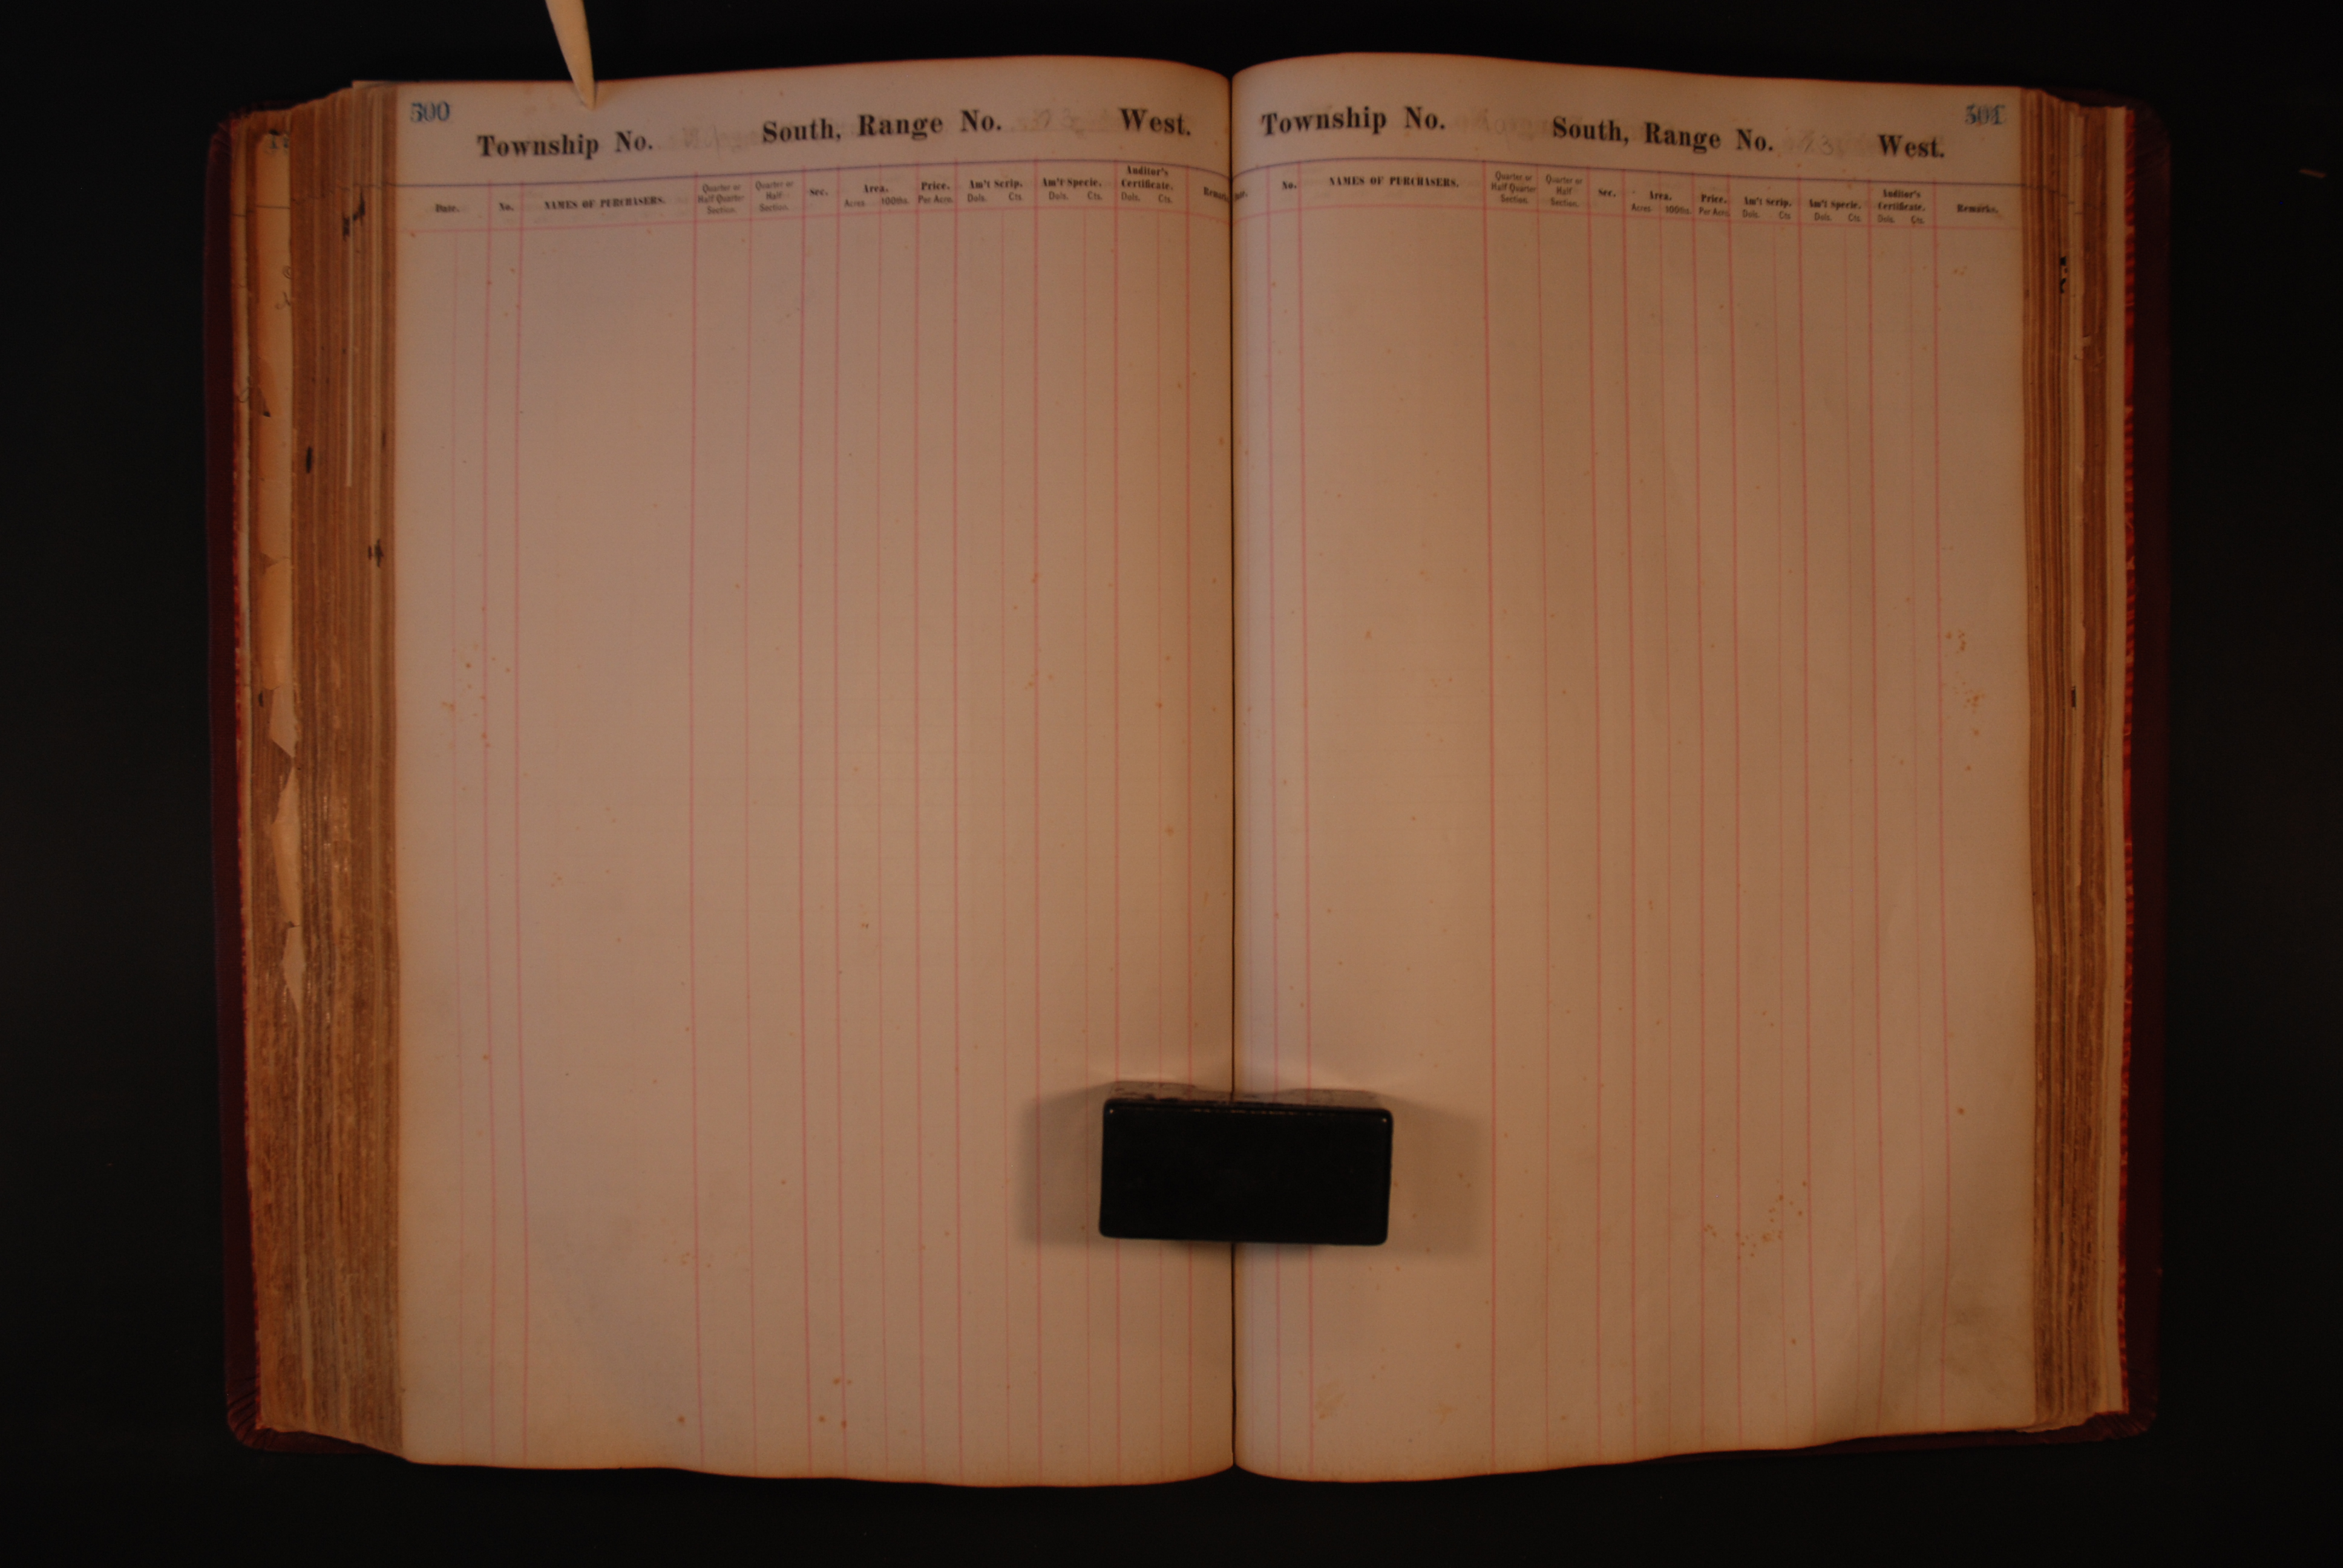 500
Township No. South, Range No. West.
Date. No. NAMES OF PURCHASERS. Quarter or Half Quarter Section. Quarter or Half Section. Sec. Area. Acres. 100ths. Price. Per Acre. Am't Scrip. Dols. Cts. Am't Specie. Dols. Cts. Auditor's Certificate. Dols. Cts. Remarks
501
Township No. South, Range No. West.
No. NAMES OF PURCHASERS. Quarter or Half Quarter Section. Quarter or Half Section. Sec. Area. Acres. 100ths. Price. Per Acre. Am't Scrip. Dols. Cts. Am't Specie. Dols. Cts. Auditor's Certificate. Dols. Cts. Remarks.